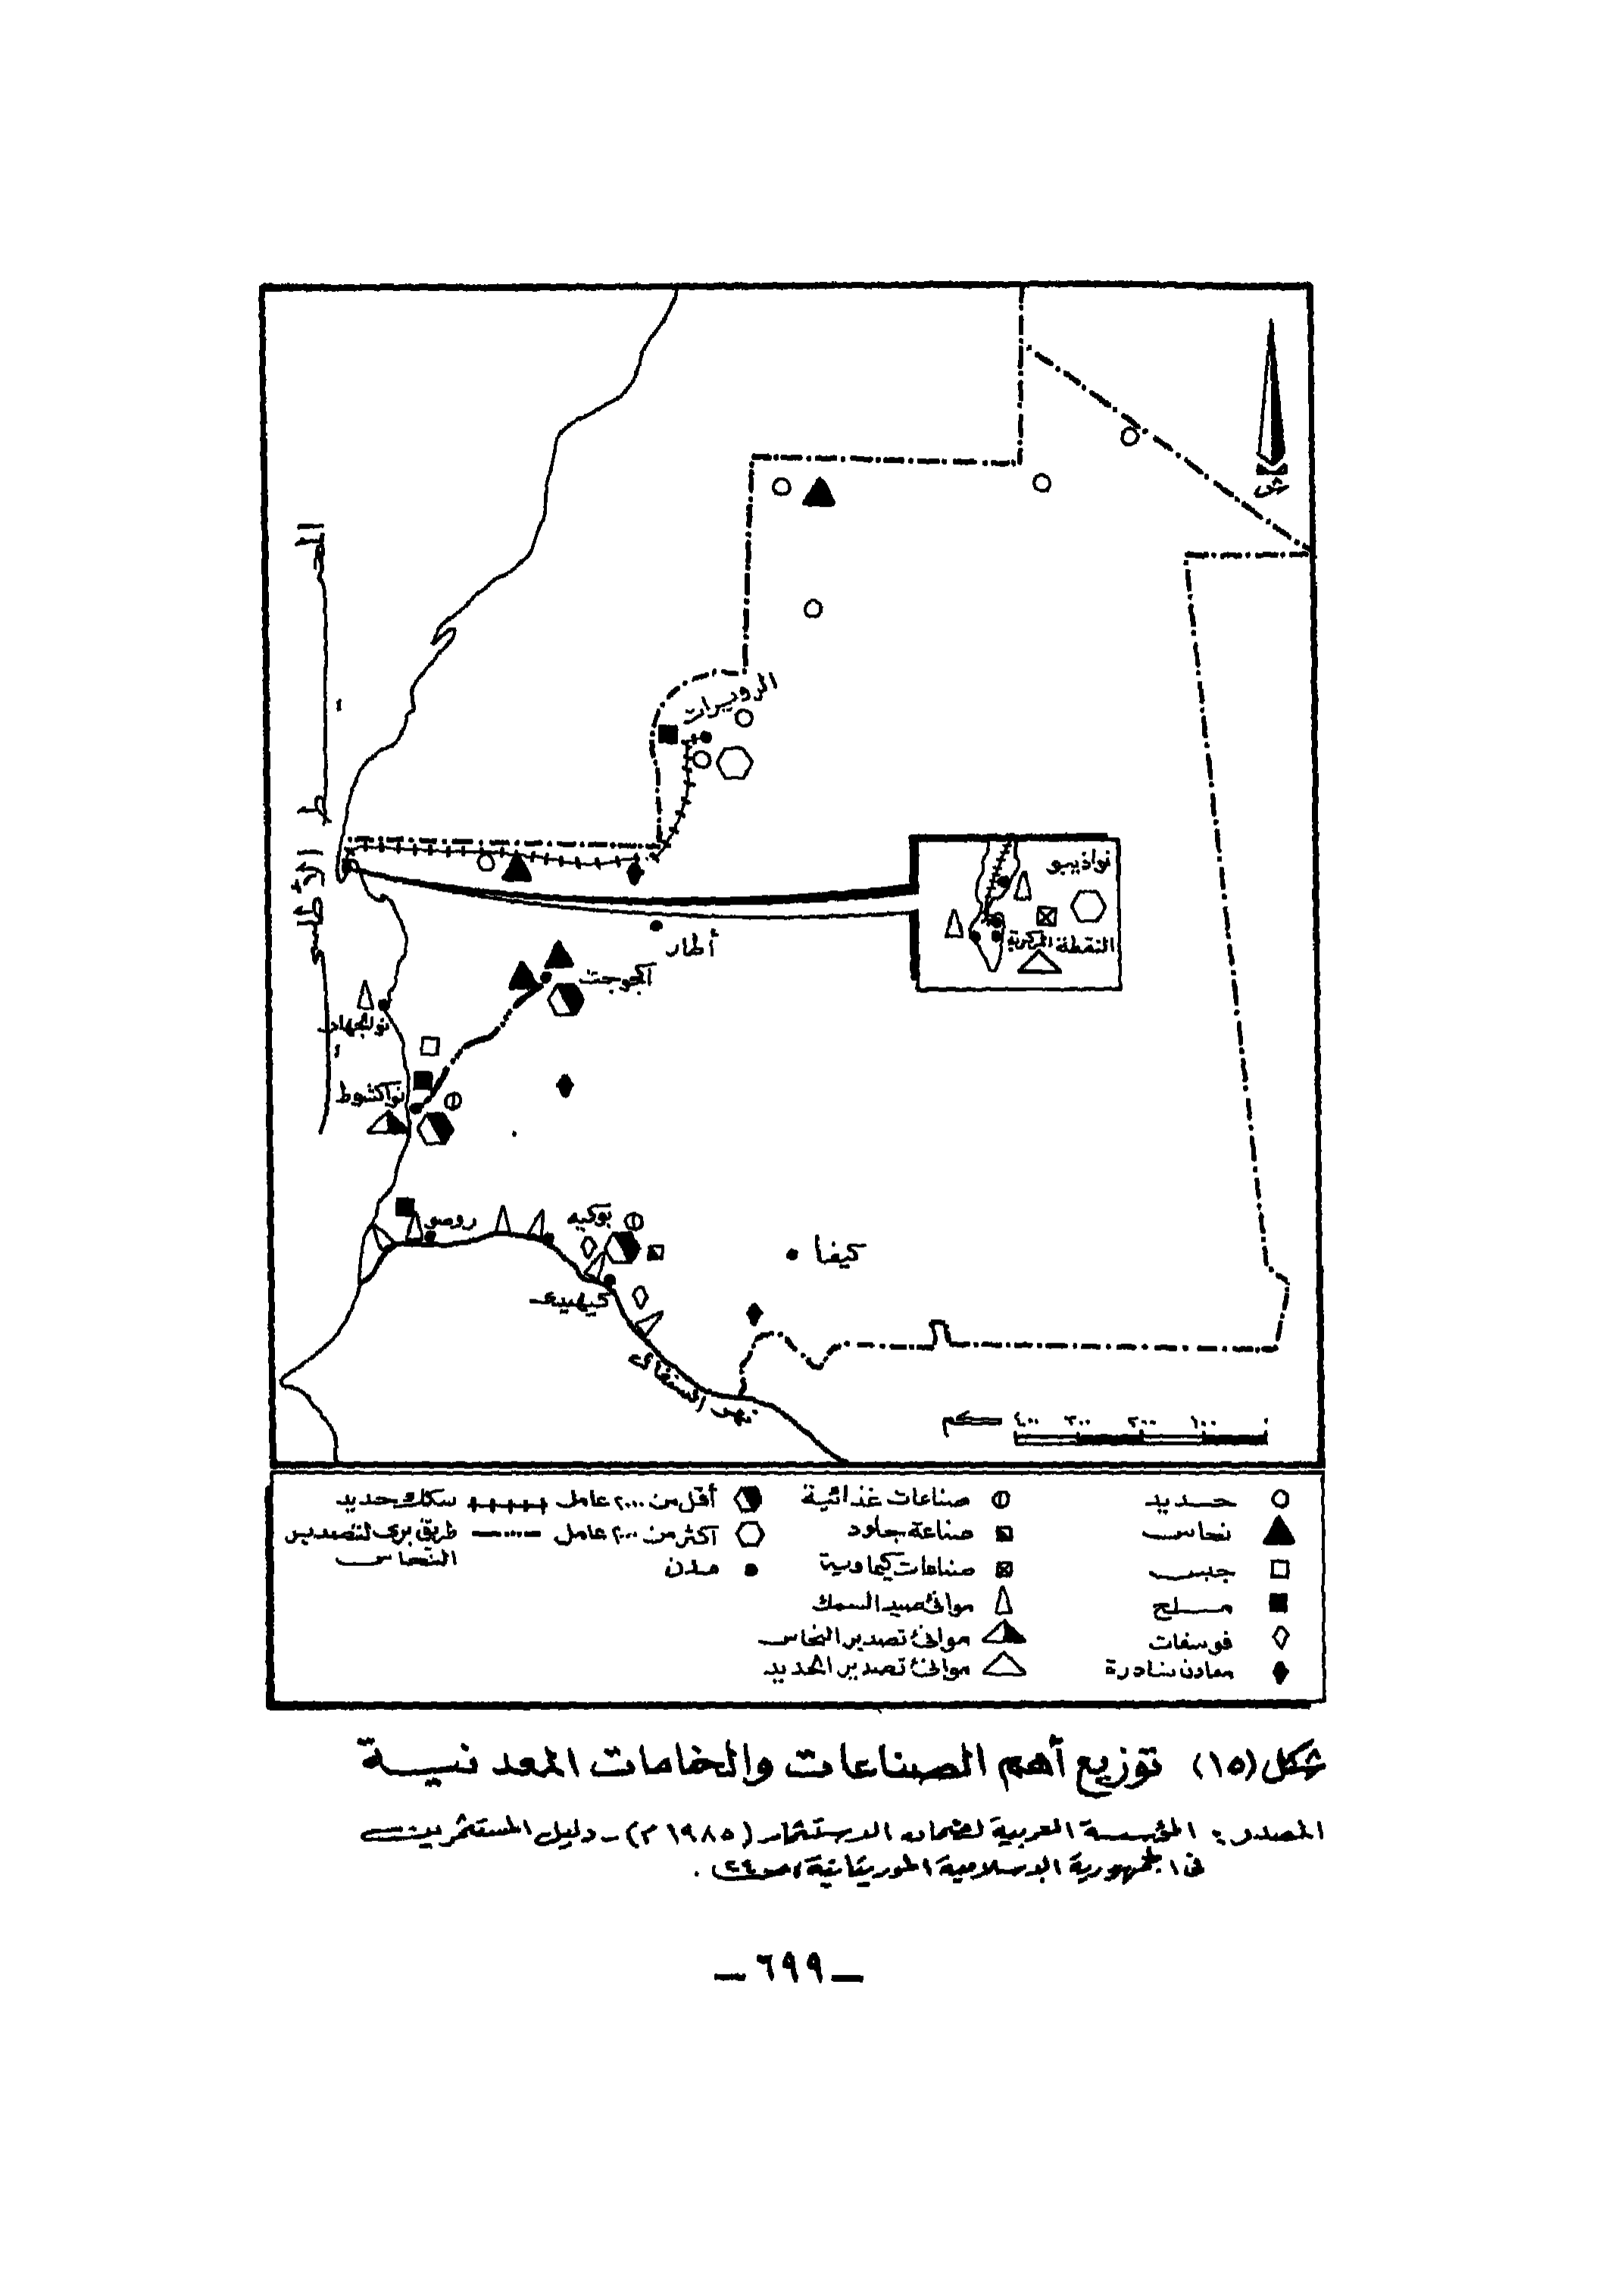 ش
المحيط الأطلسي
الزويرات
نواذيبو
النقطة المركزية
أطار
أكجوجت
نواكشوط
روصو
بوكيه
كيفا
كيهيدي
نهر السنغال
٠ ١٠٠ ٢٠٠ ٣٠٠ ٤٠٠ كم
حديد
نحاس
جبس
ملح
فوسفات
معادن نادرة
صناعات غذائية
صناعة جلود
صناعات كيماوية
موانئ صيد السمك
موانئ تصدير النحاس
موانئ تصدير الحديد
أقل من ٢٠٠٠ عامل
أكثر من ٢٠٠ عامل
مدن
سكك حديد
طريق بري لتصدير
النحاس
شكل (١٥) توزيع أهم الصناعات والخامات المعدنية
المصدر: المؤسسة العربية لضمان الاستثمار (١٩٨٥ م) ـ دليل المستثمرين
في الجمهورية الإسلامية الموريتانية، ص ٢٤ .
ـ ٦٩٩ ـ